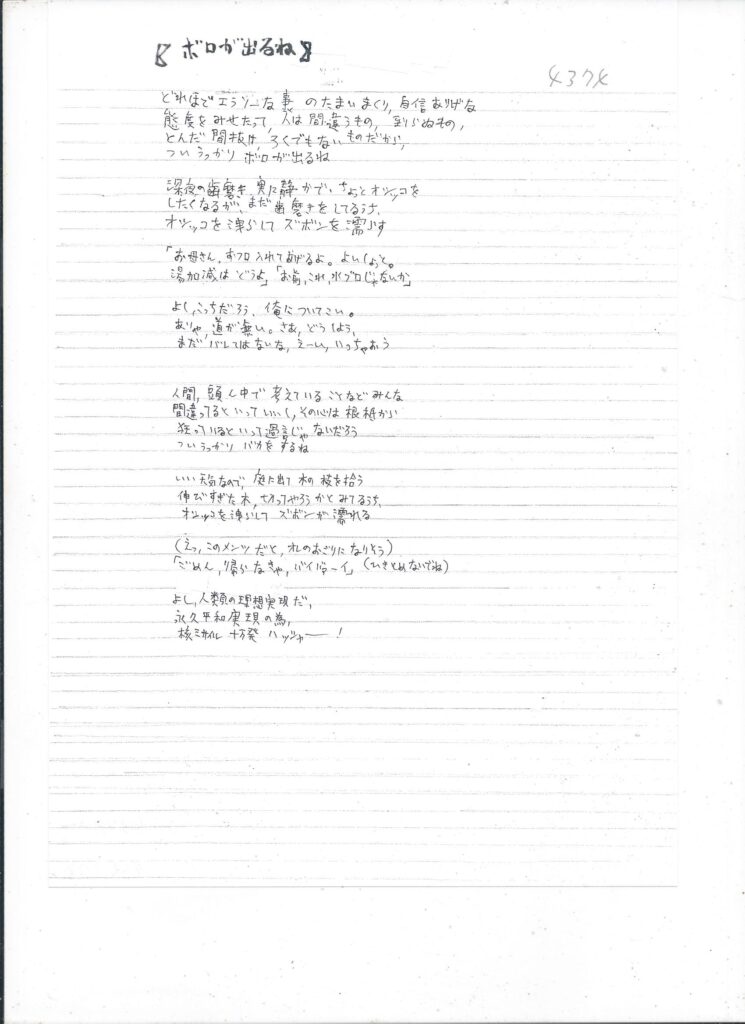 【ボロが出るね】
4374
どれほどエラソーな事のたまいまくり,自信ありげな
態度をみせたって,人は間違うもの,到らぬもの,
とんだ間抜け,ろくでもないものだから,
ついうっかりボロが出るね
深夜の歯磨き,実に静かで,ちょっとオシッコを
したくなるが,まだ歯磨きをしてるうち,
オシッコを漏らしてズボンを濡らす
「お母さん,おフロ入れてあげるよ。よいしょっと。
湯加減はどうよ」「お前,これ,水ブロじゃないか」
よし,こっちだろう,俺についてこい。
ありゃ,道が無い。さあ,どうしよう,
まだバレてはないな,えーい,いっちゃおう
人間,頭ん中で考えていることなどみんな
間違ってるといっていいし,その心は根柢から
狂っているといって過言じゃないだろう
ついうっかりバカをするね
いい天気なので,庭に出て木の枝を拾う
伸びすぎた木,切ってやろうかとみてるうち,
オシッコを漏らしてズボンが濡れる
(えっ,このメンツだと,オレのおごりになりそう)
「ごめん,帰らなきゃ,バイバーイ」(ひきとめないでね)
よし,人類の理想実現だ,
永久平和実現の為,
核ミサイル十万発ハッシャー!